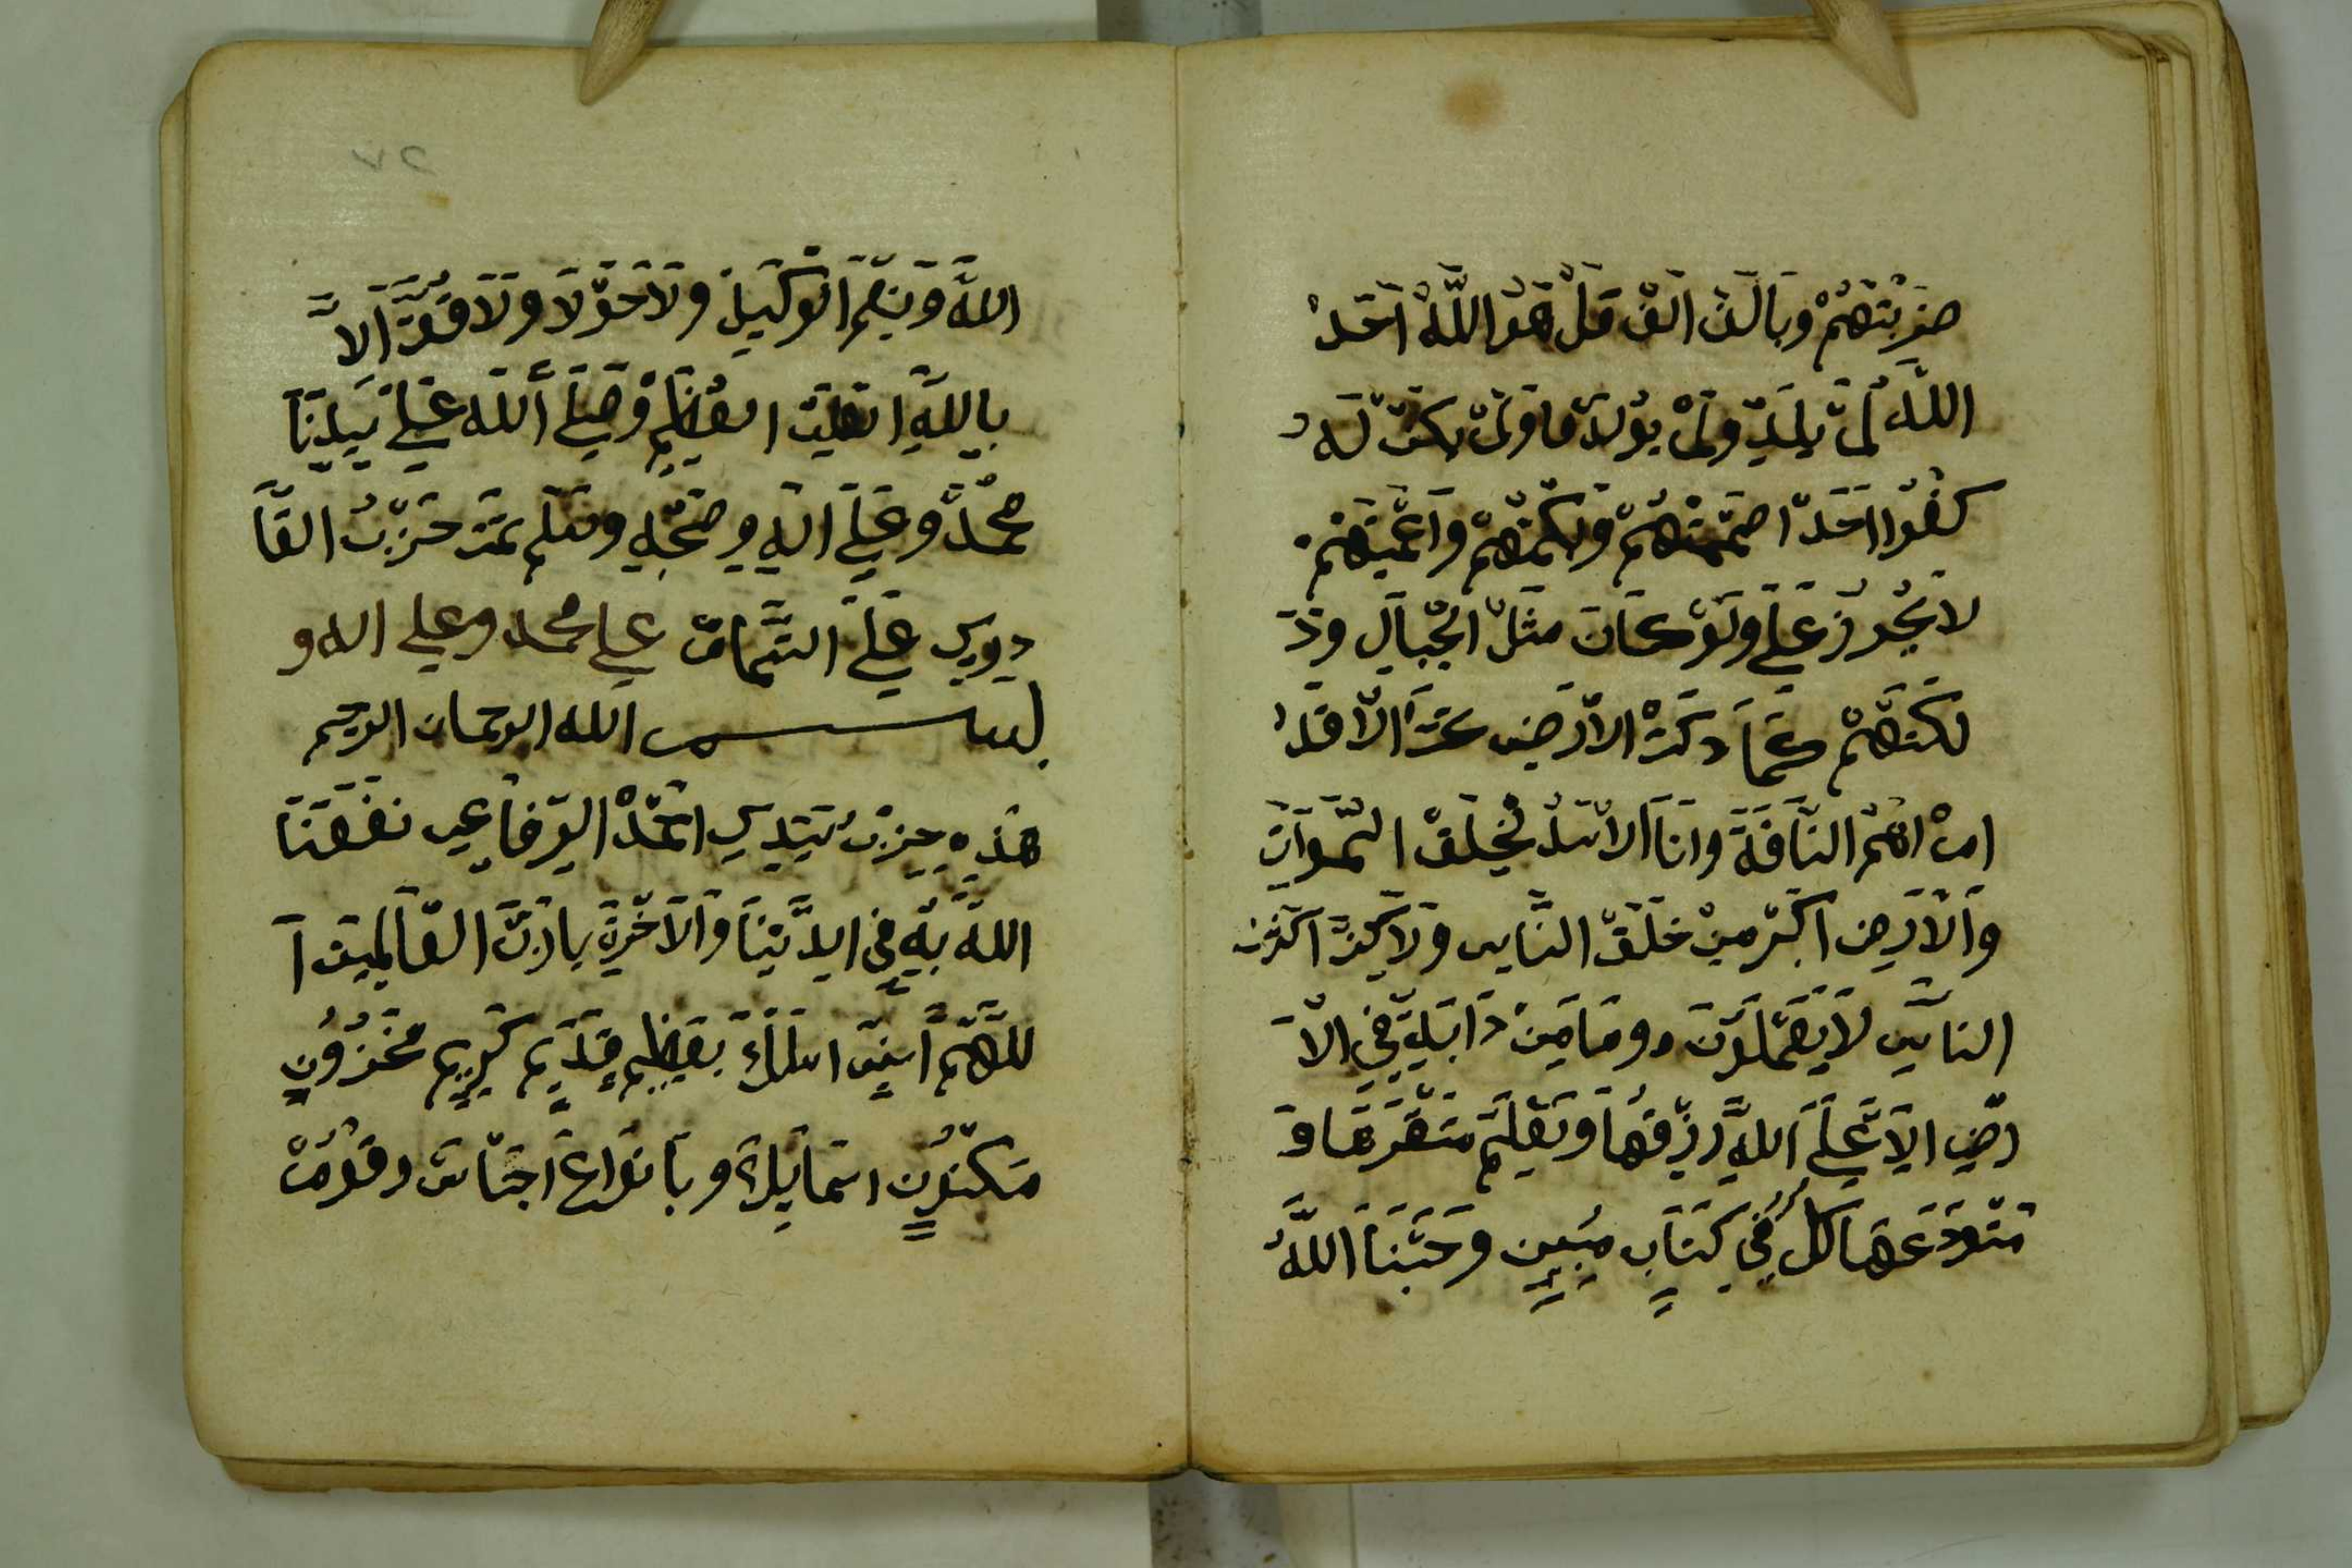 ضَرَبْتُهُمْ وَبَالَفْ اَلَفْ قُلْ هُوَ اللَّهُ اَحَدْ
اللَّهُ لَمْ يَلِدْ وَلَمْ يُوْلَدْ وَلَمْ يَكُنْ لَهُ
كُفُوًا اَحَدْ اصْمَمْتُهُمْ وَبَكَمْتُهُمْ وَاَعْمَيْتُهُمْ
لاَ يَجُوزُ عَلَيَّ وَلَوْ كَانَ مِثْلَ الْجِبَالِ وَدَ
كَتَهُمْ كَمَا دُكَّتْ الْاَرْضِ دَكًّا
انْ انْتُمْ النَّاقَةَ وَاَنَا الْاَسَدُ لَخَلْقُ السَّمَوَاتِ
وَالْاَرْضِ اَكْبَرُ مِنْ خَلْقِ النَّاسِ وَلَاكِنَّ اَكْثَرَ
النَّاسِ لَا يَعْلَمُونَ وَمَا مِنْ دَابَّةٍ فِي الْاَ
رْضِ اِلَّا عَلَى اللَّهِ رِزْقُهَا وَيَعْلَمُ مُسْتَقَرَّهَا وَ
مُسْتَوْدَعَهَا كُلٌّ فِي كِتَابٍ مُبِينٍ وَحَسْبُنَا اللَّهُ
٢٧
اللَّهُ وَنِعْمَ الْوَكِيلُ وَلَا حَوْلَا وَلَا قُوَّةَ اِلَّا
بِاللَّهِ الْعَلِيِّ الْعَظِيمِ وَصَلَّى اللَّهُ عَلَى سَيِّدِنَا
مُحَمَّدْ وَعَلَى الِهِ وَصَحْبِهِ وَسَلَّمَ تَمَّتْ حِزْبُ الْقَا
دِرِي عَلَى التَّمَامْ علي محمد وعلي اله و
بسم الله الرحمان الرحيم
هَذِهِ حِزْبُ سَيِّدِي اَحْمَدْ الرِّفَاعِي نَفَعَنَا
اللَّهُ بِهِ فِي الدُّنْيَا وَالْاَخِرَةِ يَا رَبَّ الْعَالَمِينَ آ
للَّهُمَّ اِنِّي اسْئَلُكَ بِعَظِيمِ قَدِيمِ كَرِيمِ مَخْزُونِ
مَكْنُونٍ اسْمَائِكَ وَبِاَنْوَاعِ اَجْنَاسْ رُقُومْ